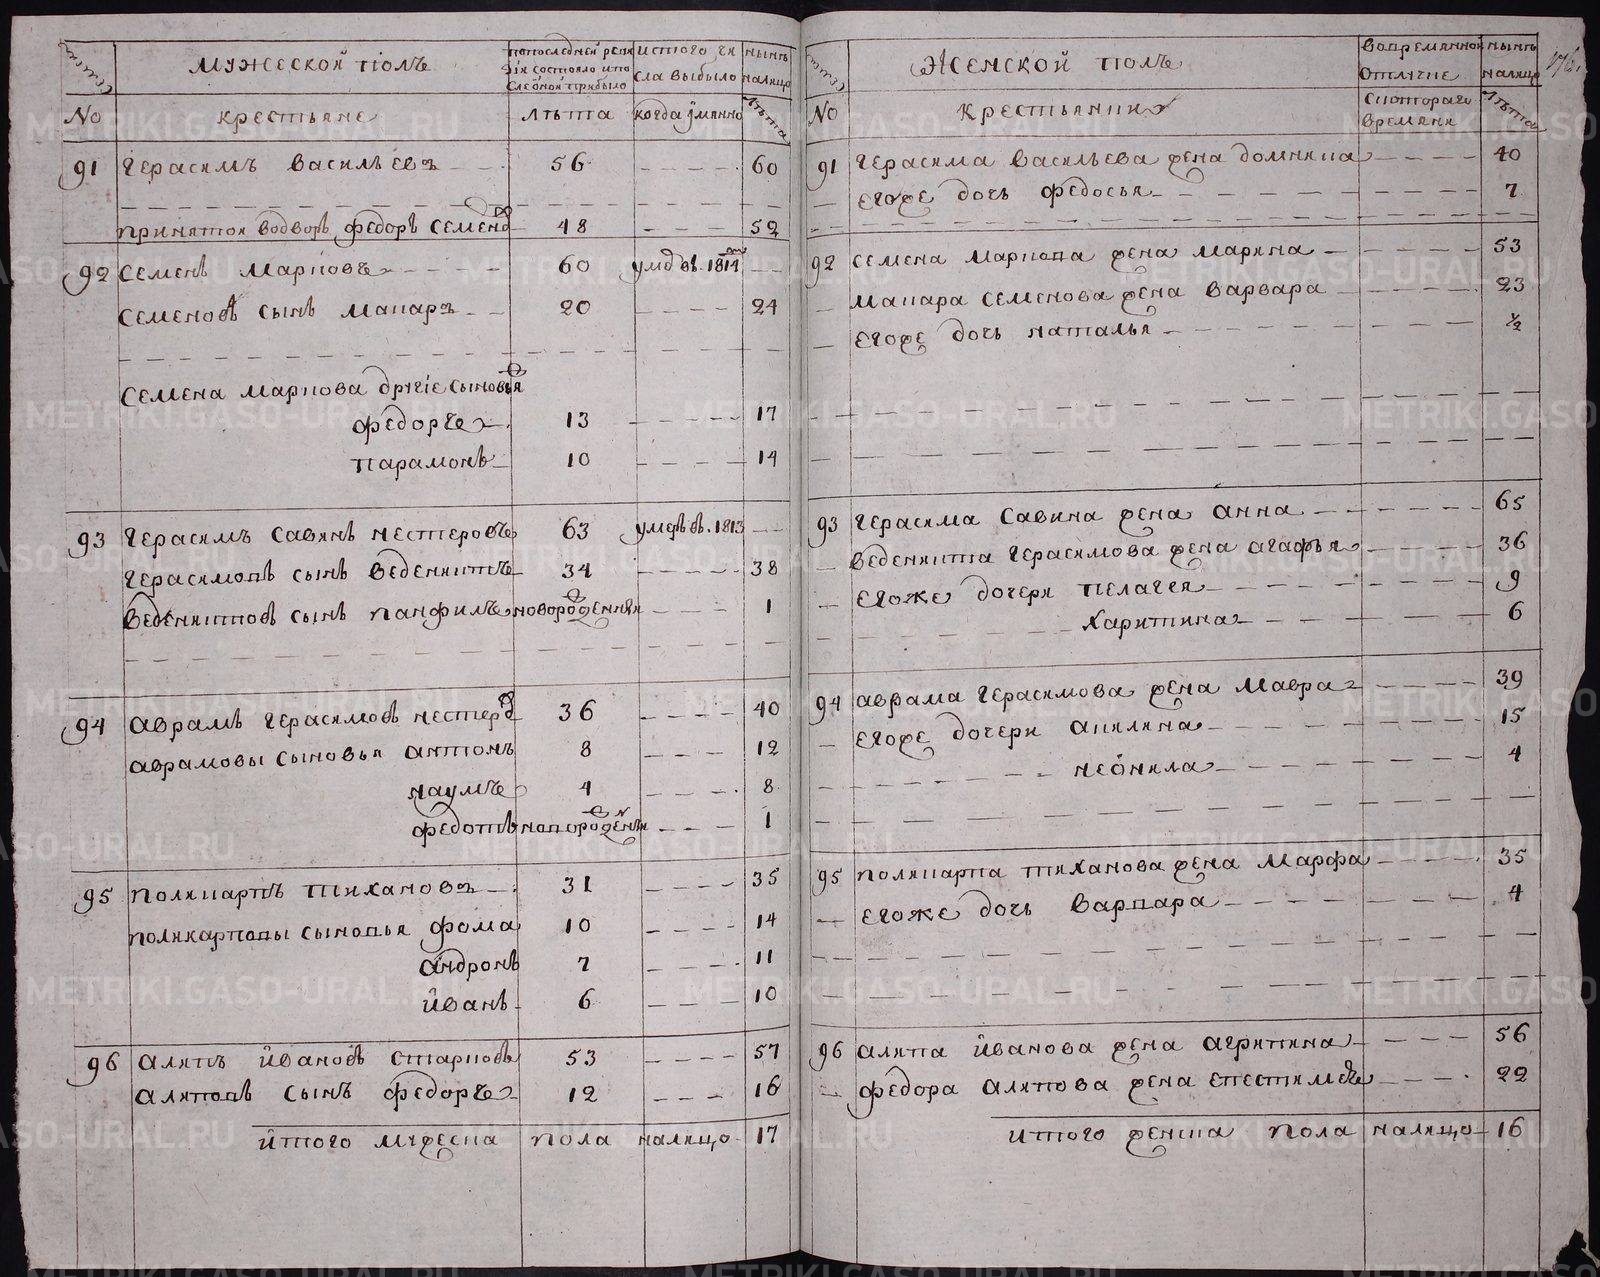 мужеской полъ
по последней реви
зіи состояло и по
слеоной прибыло
ис того чи
сла выбыло
нынъ
налицо
№
крестьяне
лѣта
когда имянно
лѣта
91 Герасимъ Васильевъ 56 60
принятои водворъ федоръ семено 48 52
92 Семенъ Марковъ 60 умре в. 1814
Семеновъ сынъ Макаръ 20 24
Семена Маркова другіе сыновья
федоръ 13 17
Парамонъ 10 14
93 Герасимъ Савинъ Нестеровъ 63 умеръ в. 1813
Герасимовъ сынъ Веденихтъ 34 38
Веденихтовъ сынъ Панфилъ новорожденныи 1
94 Аврамъ Герасимовъ нестеро 36 40
аврамовы сыновья антонъ 8 12
наумъ 4 8
федотъ новорожденъи 1
95 Поликарпъ Тихановъ 31 35
поликарповы сыновья фома 10 14
андронъ 7 11
иванъ 6 10
96 Алипъ Ивановъ Старковъ 53 57
Алиповъ сынъ федоръ 12 16
итого мужеска пола налицо 17
Женской полъ
во временной
отлучке
нынъ
налицо
№
крестьянки
с котораго
времяни
лѣта
91 Герасима Васильева жена домника 40
егоже дочь федосья 7
92 Семена Маркова жена марина 53
Макара Семенова жена варвара 23
егоже дочь наталья ½
93 Герасима Савина жена анна 65
веденихта Герасимова жена агафья 36
егоже дочери пелагея 9
харитина 6
94 аврама Герасимова жена Мавра 39
егоже дочери акилина 15
неонила 4
95 поликарпа тиханова жена Марфа 35
егоже дочь варвара 4
96 алипа иванова жена агрипина 56
федора алипова жена епестимея 22
итого женска пола налицо 16
METRIKI.GASO-URAL.RU